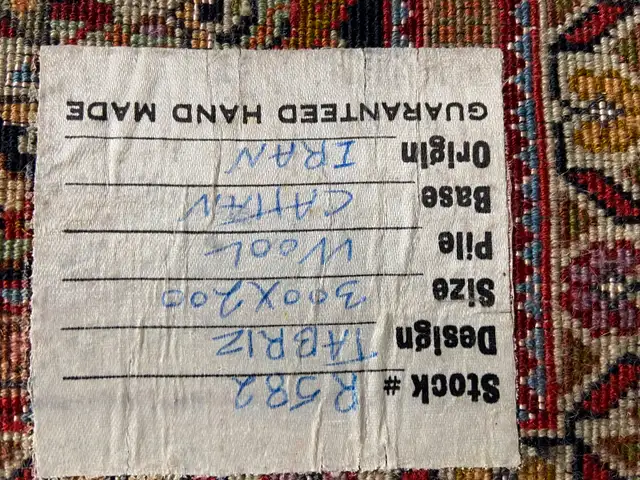 Stock # R582
Design TABRIZ
Size 300X200
Pile WOOL
Base CATTAN
Origin IRAN
GUARANTEED HAND MADE